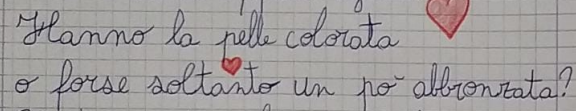 Hanno la pelle colorata
o forse soltanto un po' abbronzata?